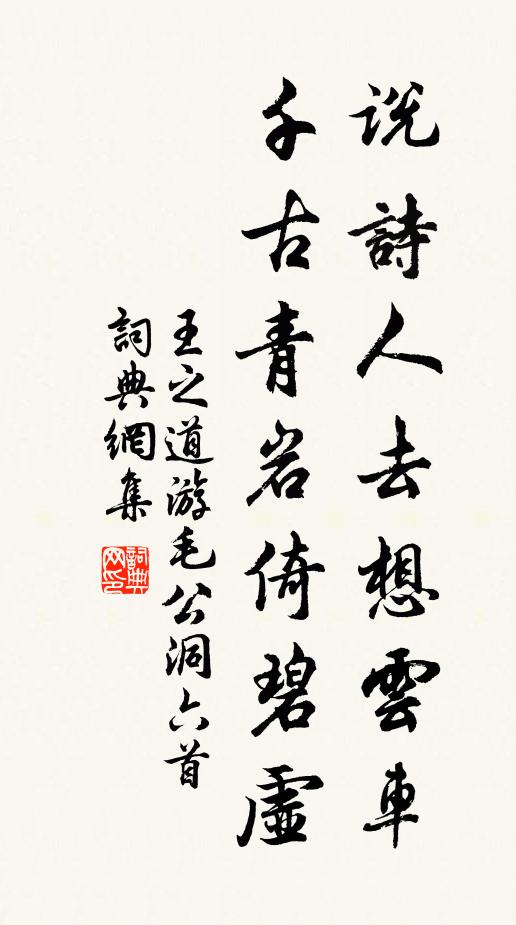 説詩人去想雲車
千古青岩倚碧虛
王之道游毛公洞六首
詞典網集
詞典网印